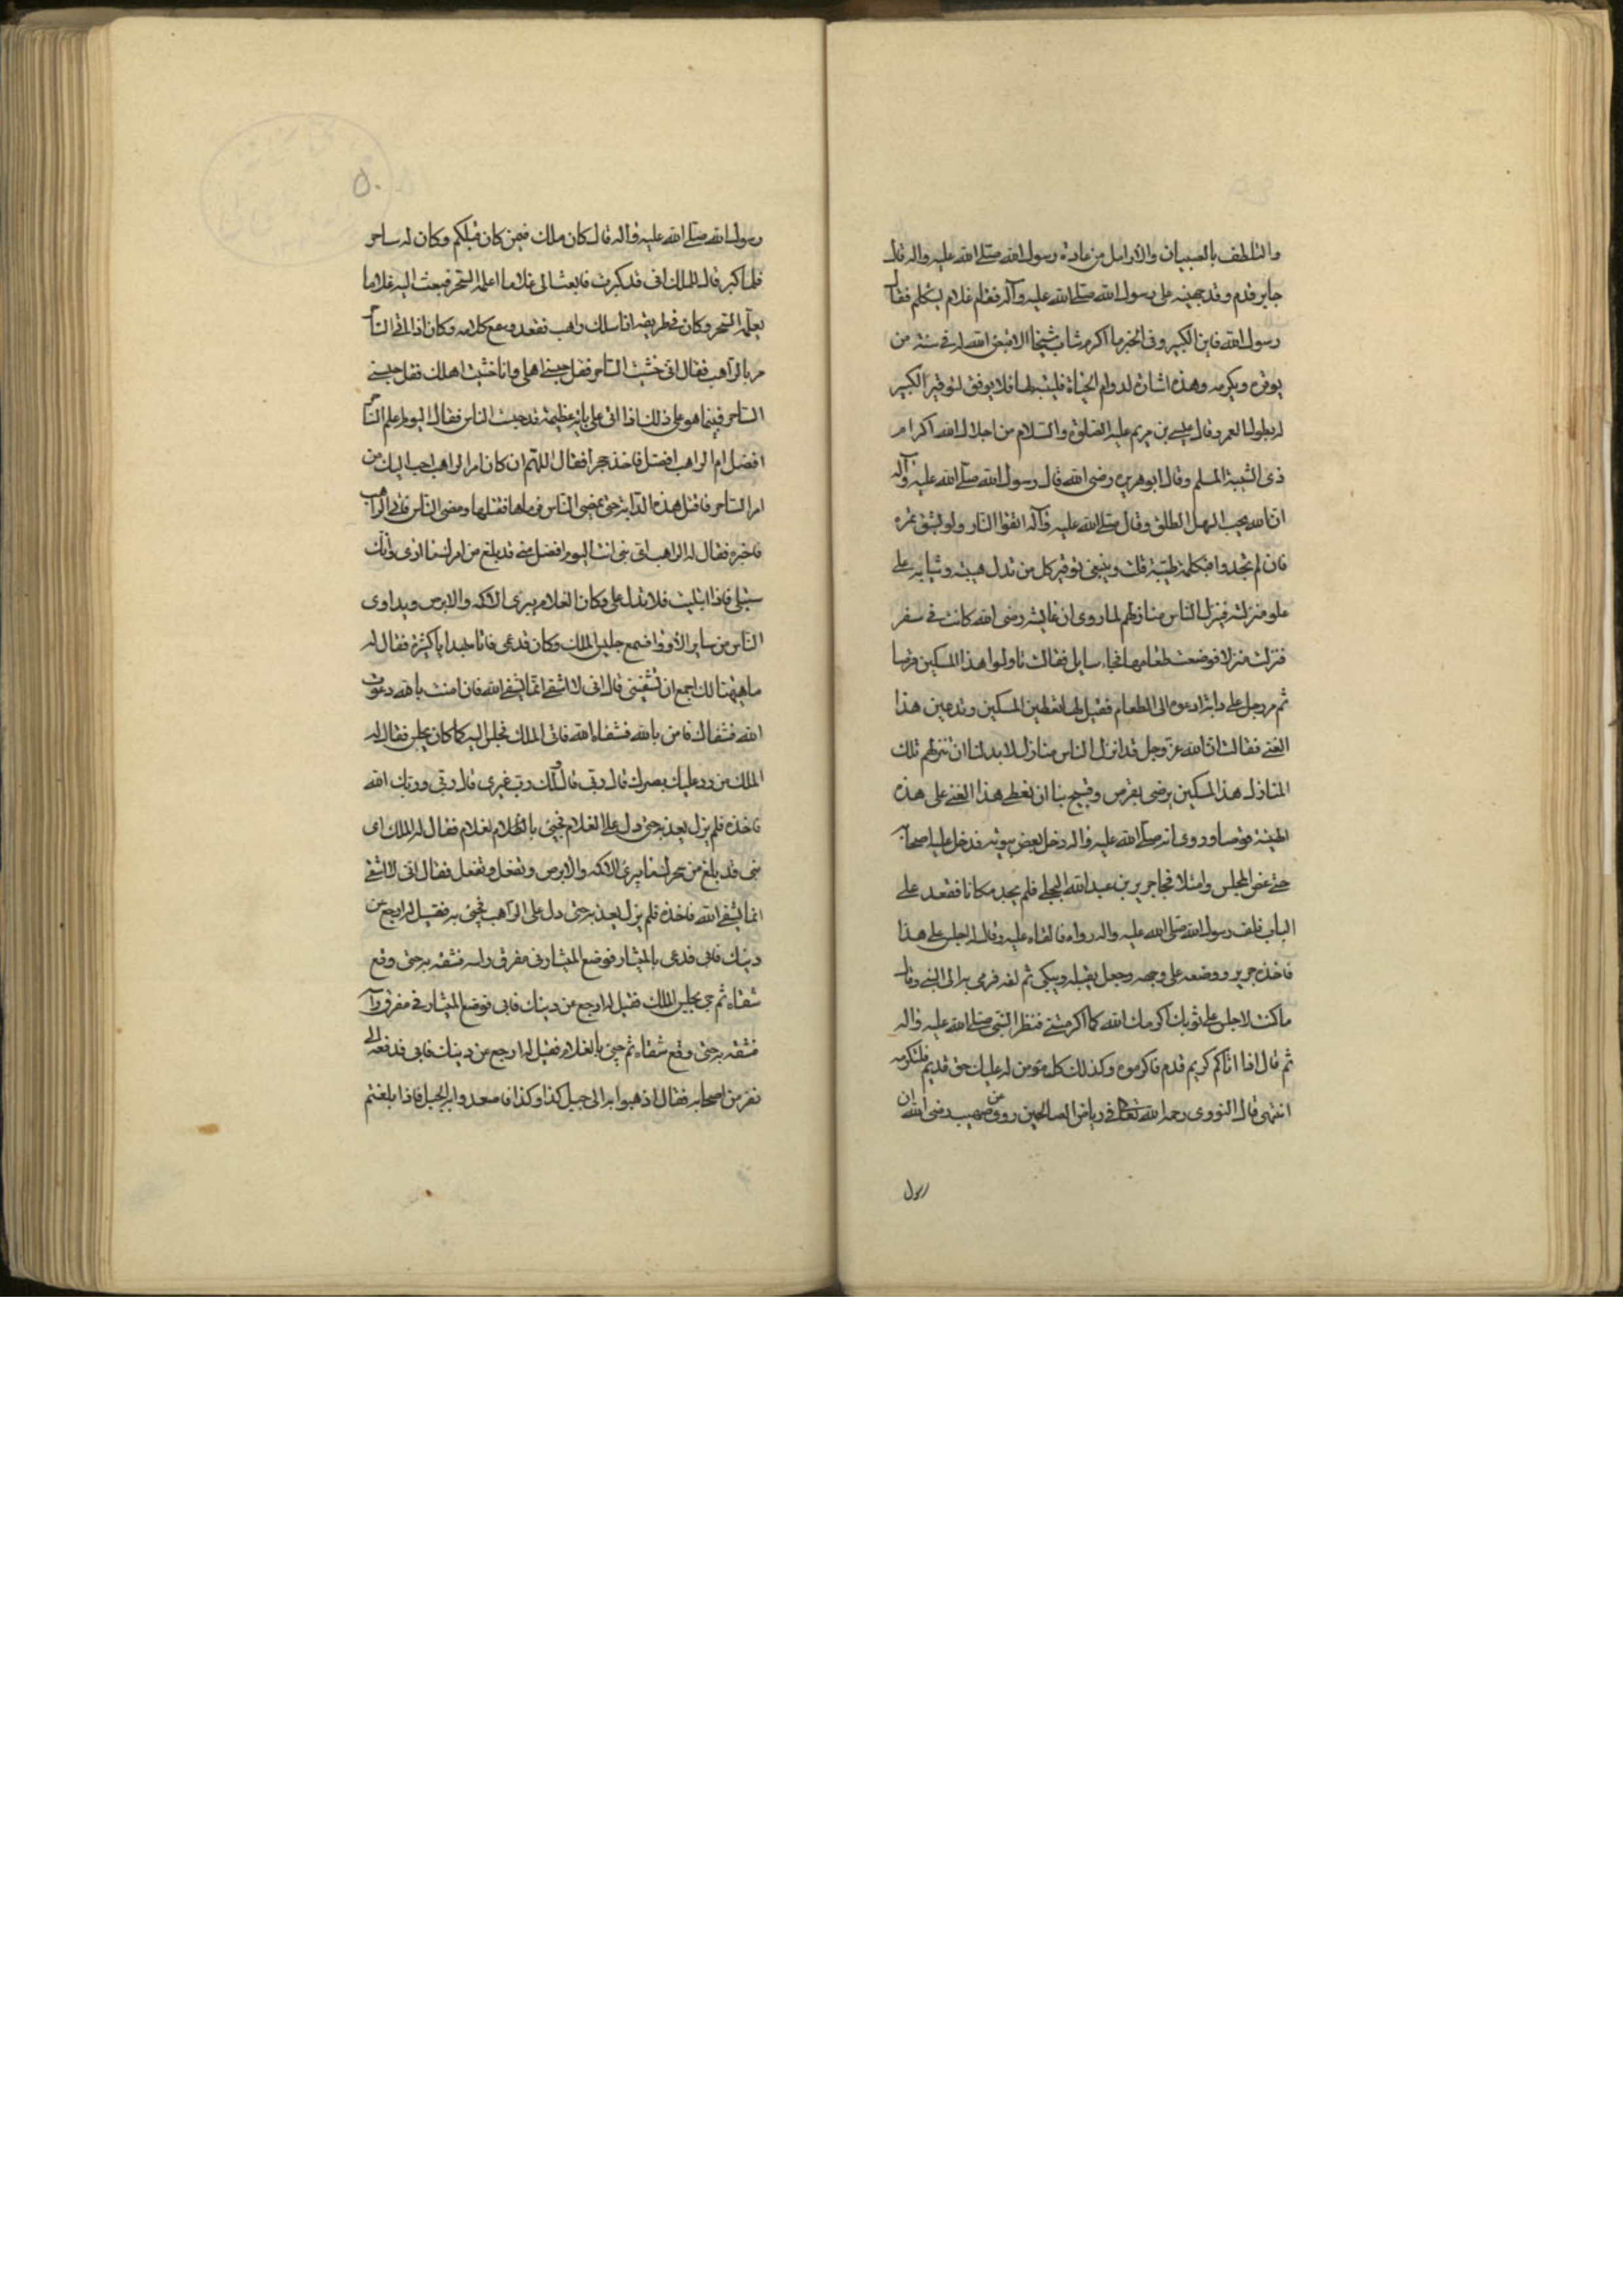 والتلطف بالصبيان والارامل من عادة رسول الله صلى الله عليه واله قال
جابر قدم وفد جهينه على رسول الله صلى الله عليه وآله فقام غلام يتكلم فقال
رسول الله فاين الكبير وفى الخبر ما اكرم شاب شيخا الا قيض الله له فى سنه من
يوقره ويكرمه وهذه اشارة لدوام الحياة فليتنبه لها فلا يوفق لتوقير الكبير
له بطول العمر وقال عيسى بن مريم عليه الصلوة والسلام من اجلال الله اكرام
ذى الشيبة المسلم وقال ابو هريره رضى الله قال رسول الله صلى الله عليه وآله
ان الله يحب السهل الطلق وقال صلى الله عليه وآله اتقوا النار ولو بشق تمره
فان لم تجدوا فبكلمة طيبة قلت وينبغى توقير كل من تدل هيبته وثيابه على
علو منزلته فينزل الناس منازلهم لما روى ان عايشه رضى الله كانت فى سفر
فنزلت منزلا فوضعت طعامها فجاء سايل فقالت ناولوا هذا المسكين قرصا
ثم مر رجل على دابة ادعوه الى الطعام فقيل لها تعطين المسكين وتدعين هذا
الغنى فقالت ان الله عز وجل قد انزل الناس منازل لا بد لنا ان ننزلهم تلك
المنازل هذا المسكين يرضى بقرص وقبيح بنا ان نعطى هذا الغنى على هذه
الهيئة قرصا وروى انه صلى الله عليه واله دخل بعض بيوته فدخل عليه اصحابه
حتى غص المجلس وامتلا فجا جرير بن عبد الله البجلى فلم يجد مكانا فقعد على
الباب فلف رسول الله صلى الله عليه واله رداه فالقاه عليه وقال له اجلس على هذا
فاخذه جرير ووضعه على وجهه وجعل يقبله ويبكى ثم لفه فرمى به الى النبى وقال
ما كنت لاجلس على ثوبك اكرمك الله كما اكرمتنى فنظر النبى صلى الله عليه واله
ثم قال اذا اتاكم كريم قوم فاكرموه وكذلك كل مؤمن له عليك حق قديم فلتكرمه
انتهى قال النووى رحمه الله تعالى فى رياض الصالحين روى عن صهيب رضى الله ان
رسول
٥٠
رسول الله صلى الله عليه وآله قال كان ملك فيمن كان قبلكم وكان له ساحر
فلما كبر قال للملك انى قد كبرت فابعث الى غلاما اعلمه السحر فبعث اليه غلاما
يعلمه السحر وكان فى طريقه اذا سلك راهب فقعد وسمع كلامه وكان اذا اتى الساحر
مر بالراهب فقال اذا خشيت الساحر فقل حبسنى اهلى واذا خشيت اهلك فقل حبسنى
الساحر فبينما هو على ذلك اذا اتى على دابة عظيمة قد حبست الناس فقال اليوم اعلم الساحر
افضل ام الراهب افضل فاخذ حجرا فقال اللهم ان كان امر الراهب احب اليك من
امر الساحر فاقتل هذه الدابة حتى يمضى الناس فرماها فقتلها ومضى الناس فاتى الراهب
فاخبره فقال له الراهب اى بنى انت اليوم افضل منى قد بلغ من امرك ما ارى وانك
ستبلى فاذا ابتليت فلا تدل على وكان الغلام يبرى الاكمه والابرص ويداوى
الناس من ساير الادوا فسمع جليس الملك وكان قد عمى فاتاه بهدايا كثيرة فقال له
ما هيهنا لك اجمع ان شفيتنى قال انى لا اشفى انما يشفى الله فان امنت بالله دعوت
الله فشفاك فامن بالله فشفاه الله فاتى الملك فجلس اليه كما كان يجلس فقال له
الملك من رد عليك بصرك قال ربى قال ولك رب غيرى قال ربى وربك الله
فاخذه فلم يزل يعذبه حتى دل على الغلام فجيئ بالغلام فقال له الملك اى
بنى قد بلغ من سحرك ما يبرئ الاكمه والابرص وتفعل وتفعل فقال انى لا اشفى
انما يشفى الله فاخذه فلم يزل يعذبه حتى دل على الراهب فجيئ به فقيل له ارجع عن
دينك فابى فدعى بالمنشار فوضع المنشار فى مفرق راسه فشقه به حتى وقع
شقاه ثم جئ بجليس الملك فقيل له ارجع عن دينك فابى فوضع المنشار فى مفرق راسه
فشقه به حتى وقع شقاه ثم جيئ بالغلام فقيل له ارجع عن دينك فابى فدفعه الى
نفر من اصحابه فقال اذهبوا به الى جبل كذا وكذا فاصعدوا به الجبل فاذا بلغتم